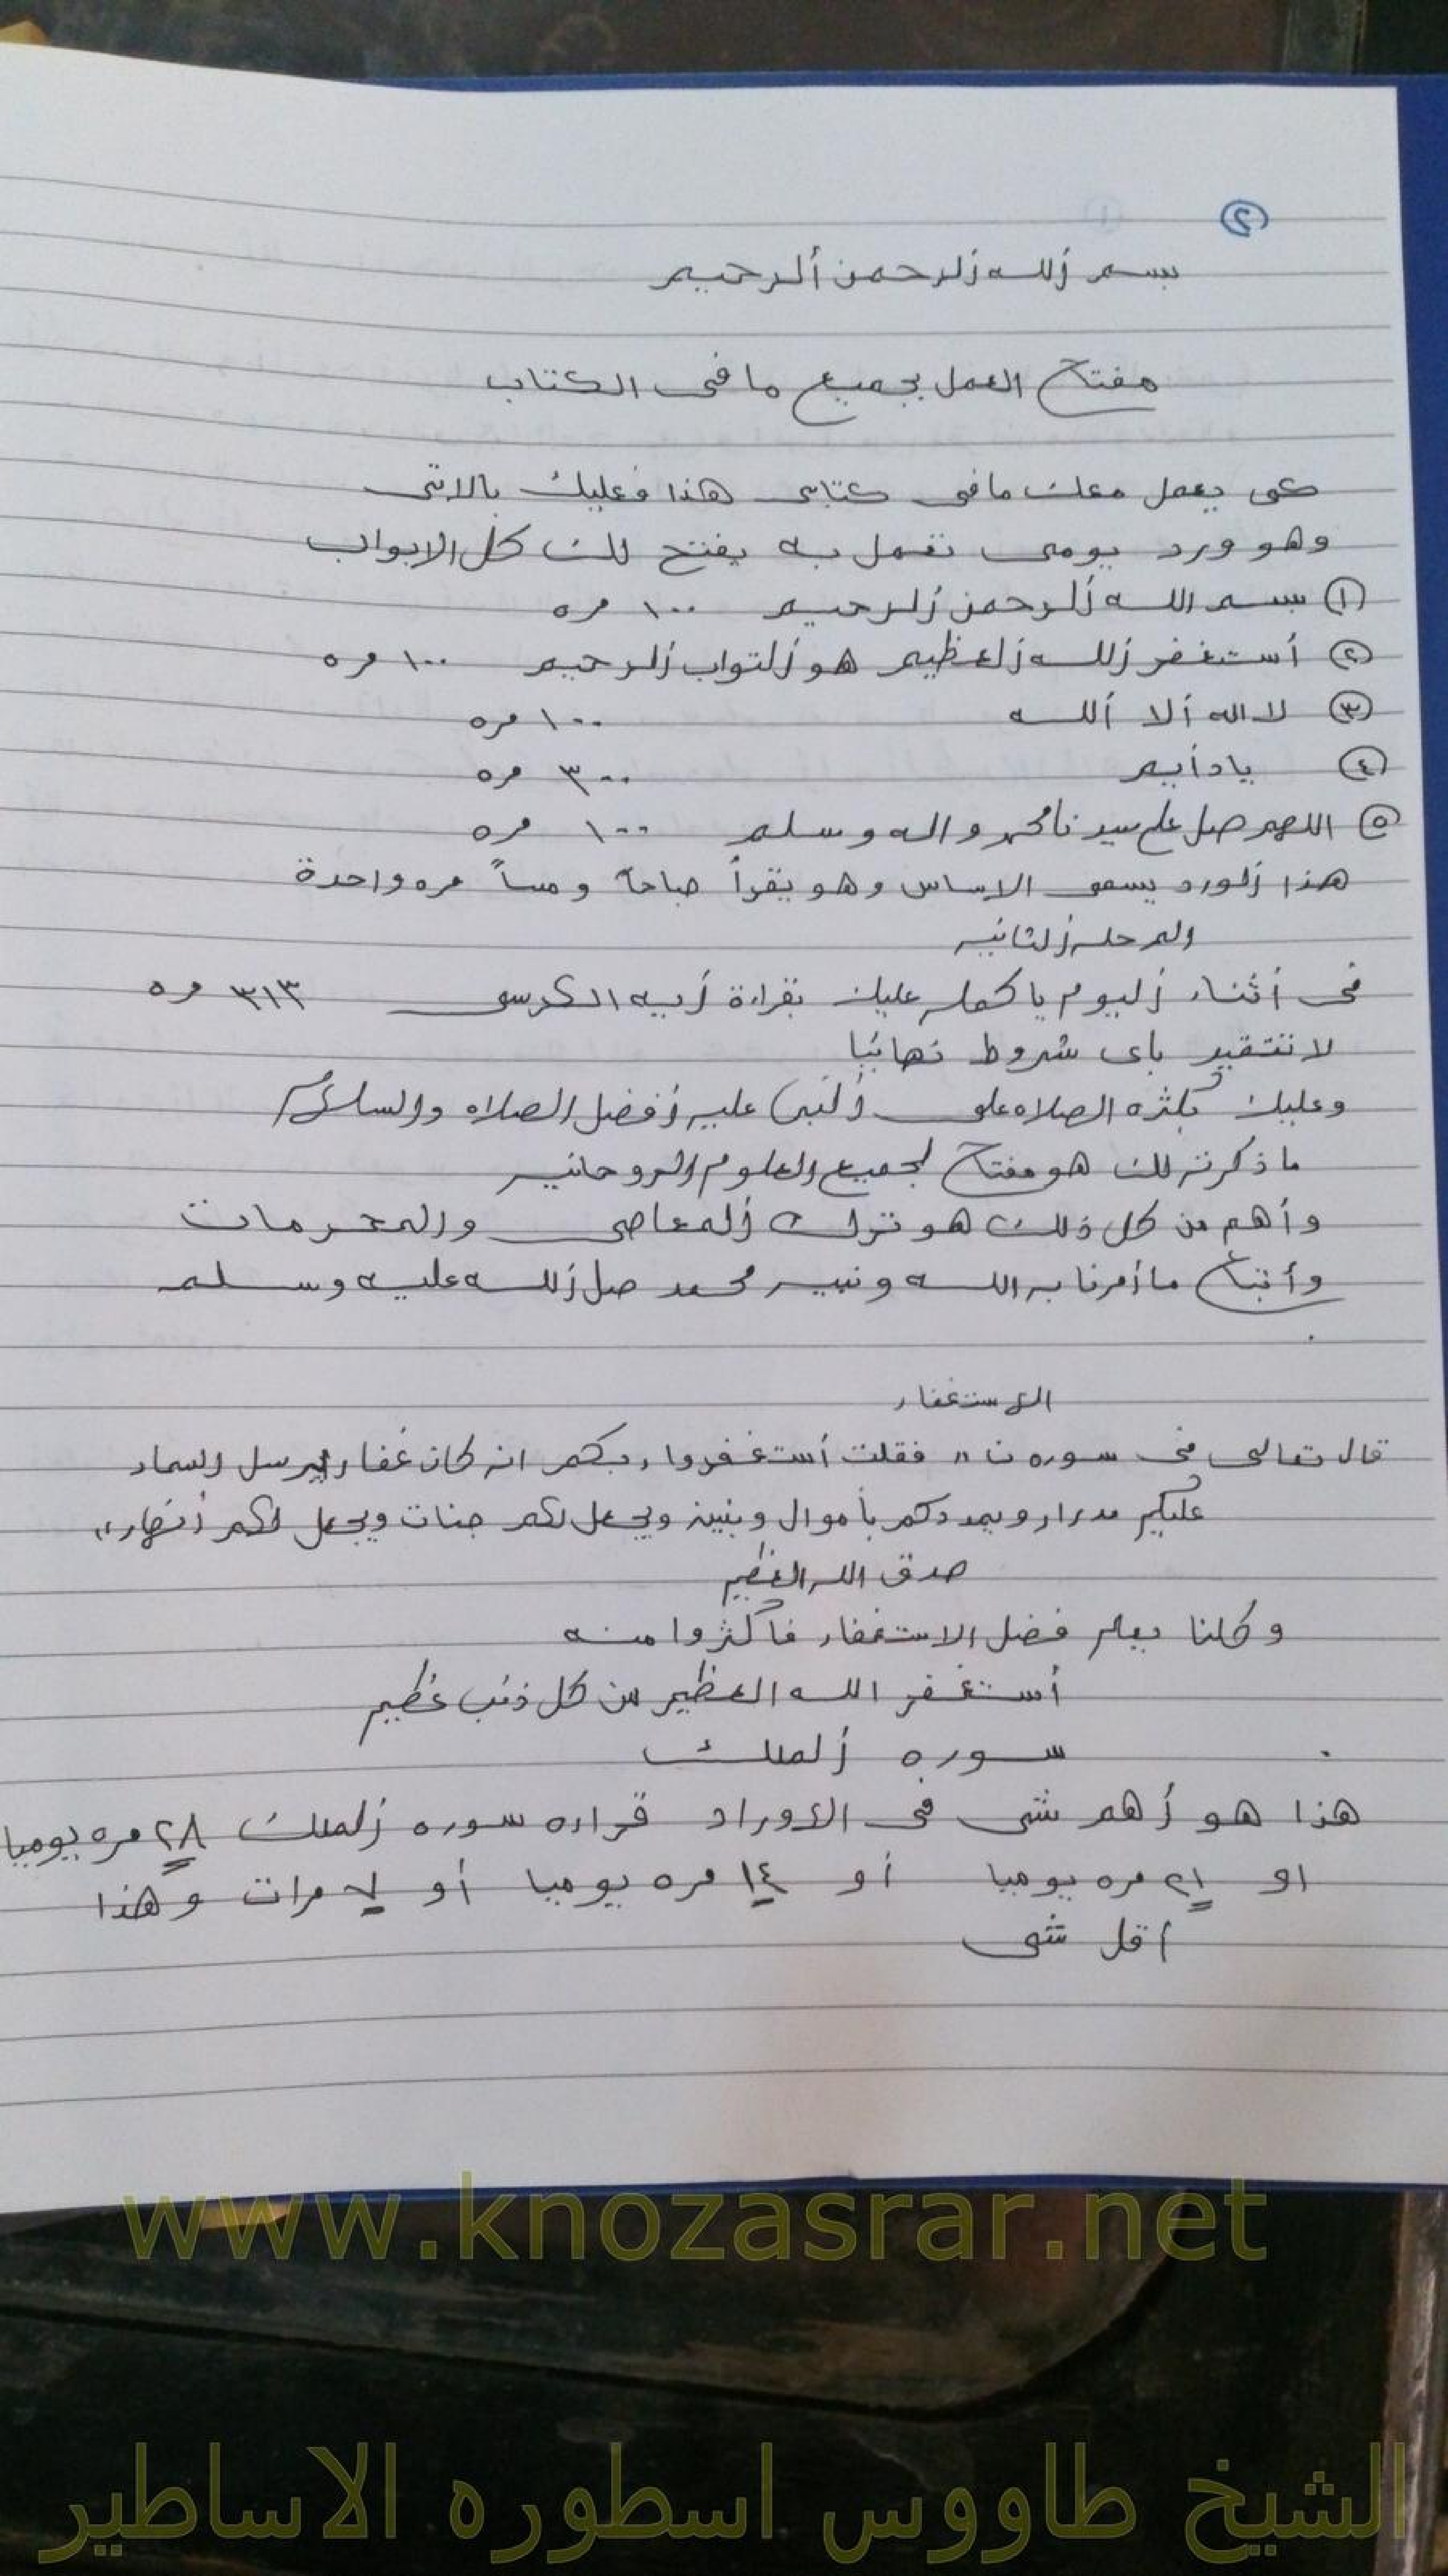 ٢
بسم الله الرحمن ألرحيم
مفتاح العمل بجميع ما فى الكتاب
كى يعمل معك ما فى كتابى هذا فعليك بالاتى
وهو ورد يومى تعمل به يفتح لك كل الابواب
١ بسم الله ألرحمن ألرحيم ١٠٠ مره
٢ أستغفر ألله ألعظيم هو ألتواب ألرحيم ١٠٠ مره
٣ لا اله ألا ألله ١٠٠ مره
٤ يا دأيم ٣٠٠ مره
٥ اللهم صل على سيدنا محمد واله وسلم ١٠٠ مره
هذا ألورد يسمى الاساس وهو يقرأ صباحاً ومساً مره واحدة
والمرحله ألثانيه
فى أثناء أليوم ياكمله عليك بقراءة أيه الكرسى ٣١٣ مره
لا تتقيد باى شروط نهائيا
وعليك بكثره الصلاه على ألنبى عليه أفضل الصلاه والسلام
ما ذكرته لك هو مفتاح لجميع العلوم الروحانيه
وأهم من كل ذلك هو ترك ألمعاصى والمحرمات
وأتباع ما أمرنا به الله ونبيه محمد صل ألله عليه وسلم
الاستغفار
قال تعالى فى سوره ن " فقلت أستغفروا ربكم انه كان غفار يرسل السماء
عليكم مدرار ويمددكم بأموال وبنين ويجعل لكم جنات ويجعل لكم أنهار "
صدق الله العظيم
وكلنا يعلم فضل الاستغفار فاكثروا منه
أستغفر الله العظيم من كل ذنب عظيم
سوره ألملك
هذا هو أهم شى فى الاوراد قراءه سوره ألملك ٢٨ مره يوميا
او ٢١ مره يوميا أو ١٤ مره يوميا أو ٧ مرات وهذا
اقل شى
www.knozasrar.net
الشيخ طاووس اسطوره الاساطير